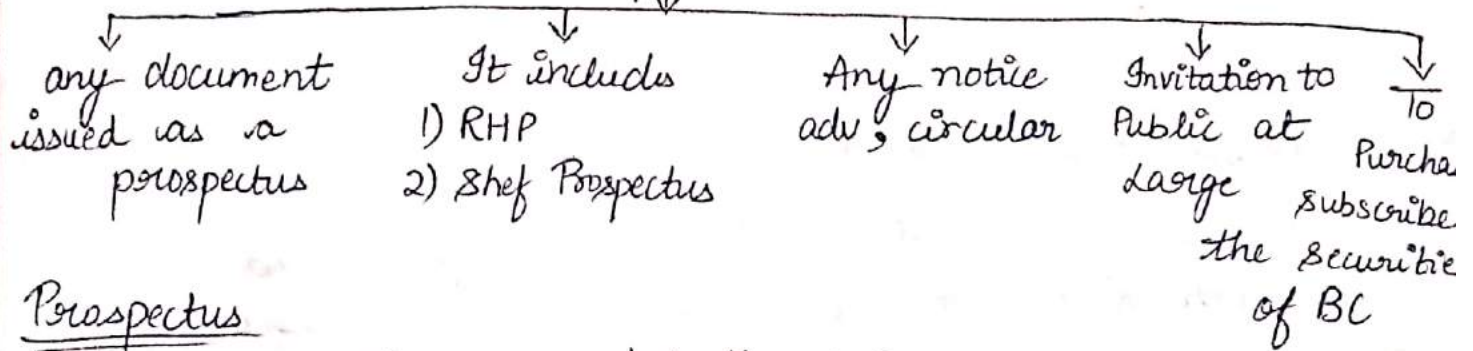 any document
issued as a
prospectus
It includs
1) RHP
2) Shef Prospectus
Any notice
adv, circular
Invitation to
Public at
Large
To
Purcha
Subscribe
the Securitie
of BC
Prospectus